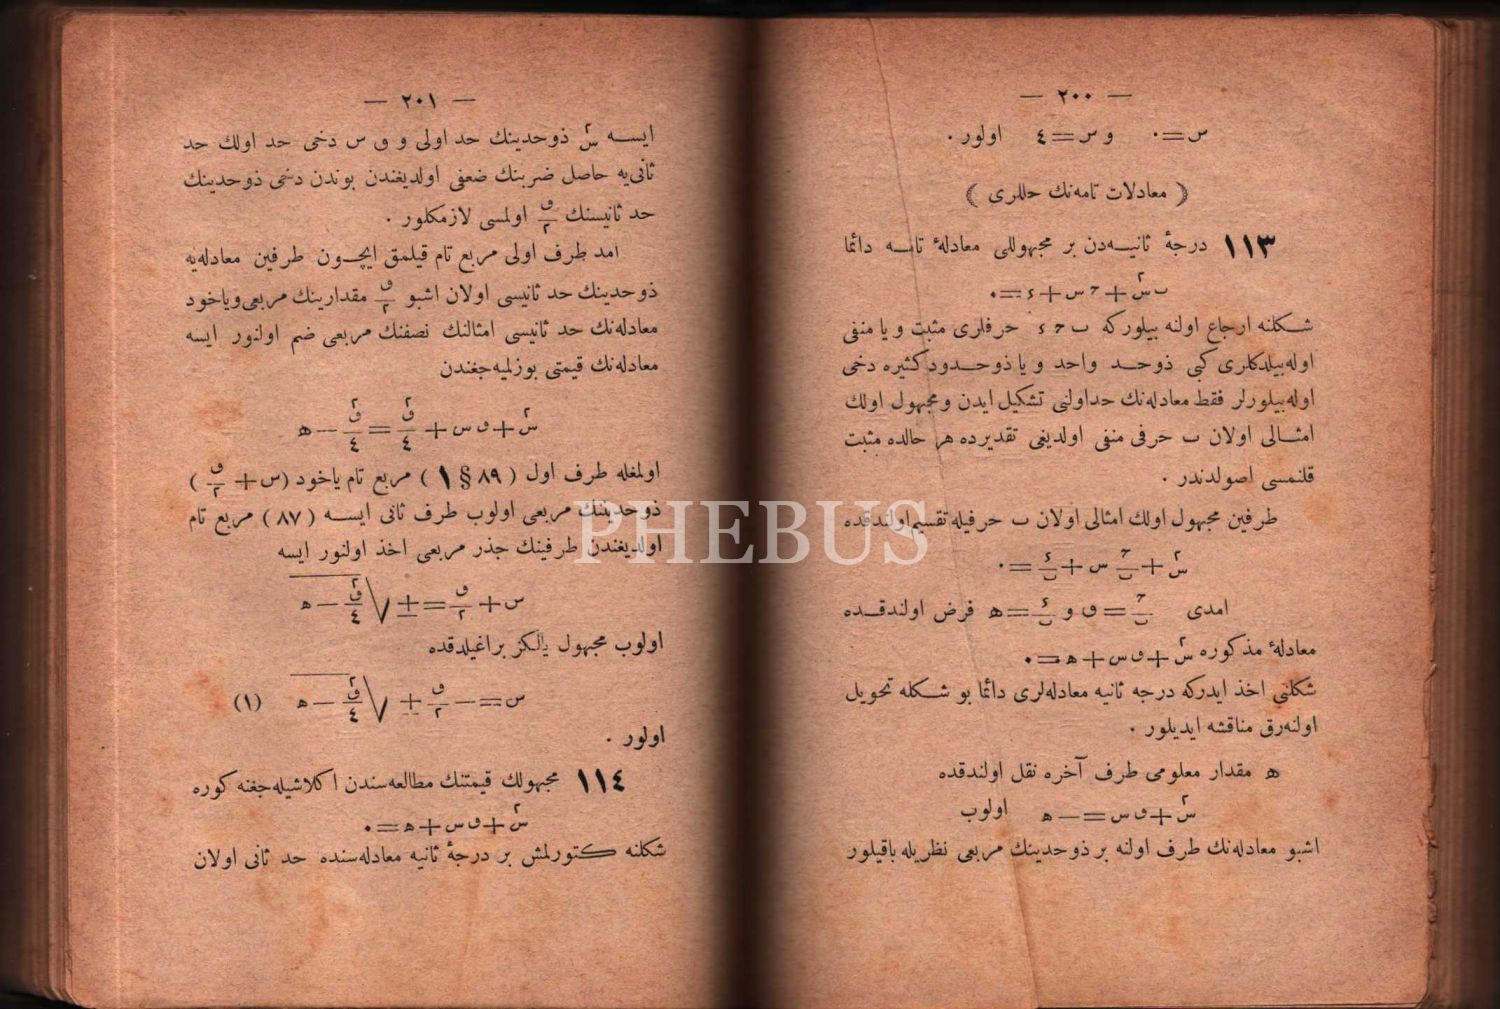 — ٢٠٠ —
س = ٠ و س = ٤ اولور .
( معادلات تامه‌نك حللری )
١١٣ درجۀ ثانیه‌دن بر مجهوللی معادلۀ تامه دائما
ب س٢ + ح س + ء = ٠
شكلنه ارجاع اولنه بیلوركه ب ح ء حرفلری مثبت و یا منفی
اوله‌بیلدكلری كبی ذوحد واحد و یا ذوحدود كثیره دخی
اوله‌بیلورلر فقط معادله‌نك حد اولنی تشكیل ایدن و مجهول اولك
امثالی اولان ب حرفی منفی اولدیغی تقدیرده هر حالده مثبت
قلنمسی اصولدندر .
طرفین مجهول اولك امثالی اولان ب حرفیله تقسیم اولندقده
س٢ + ح/ب س + ء/ب = ٠
امدی ح/ب = ق و ء/ب = ه فرض اولندقده
معادلۀ مذكوره س٢ + ق س + ه = ٠
شكلنی اخذ ایدركه درجه ثانیه معادله‌لری دائما بو شكله تحویل
اولنه‌رق مناقشه ایدیلور .
ه مقدار معلومی طرف آخره نقل اولندقده
س٢ + ق س = — ه اولوب
اشبو معادله‌نك طرف اولنه بر ذوحدینك مربعی نظریله باقیلور
— ٢٠١ —
ایسه س٢ ذوحدینك حد اولی و ق س دخی حد اولك حد
ثانی‌یه حاصل ضربنك ضعفی اولدیغندن بوندن دخی ذوحدینك
حد ثانیسنك ق/٢ اولمسی لازمكلور .
امد طرف اولی مربع تام قیلمق ایچون طرفین معادله‌یه
ذوحدینك حد ثانیسی اولان اشبو ق/٢ مقدارینك مربعی ویاخود
معادله‌نك حد ثانیسی امثالنك نصفنك مربعی ضم اولنور ایسه
معادله‌نك قیمتی بوزلمیه‌جغندن
س٢ + ق س + ق٢/٤ = ق٢/٤ — ه
اولمغله طرف اول ( ٨٩ § ١ ) مربع تام یاخود (س + ق/٢ )
ذوحدینك مربعی اولوب طرف ثانی ایسه ( ٨٧ ) مربع تام
اولدیغندن طرفینك جذر مربعی اخذ اولنور ایسه
س + ق/٢ = ± √ ق٢/٤ — ه
اولوب مجهول یالكز براغیلدقده
س = — ق/٢ ± √ ق٢/٤ — ه (١)
اولور .
١١٤ مجهولك قیمتنك مطالعه‌سندن اكلاشیله‌جغنه كوره
س٢ + ق س + ه = ٠
شكلنه كتورلمش بر درجۀ ثانیه معادله‌سنده حد ثانی اولان
PHEBUS